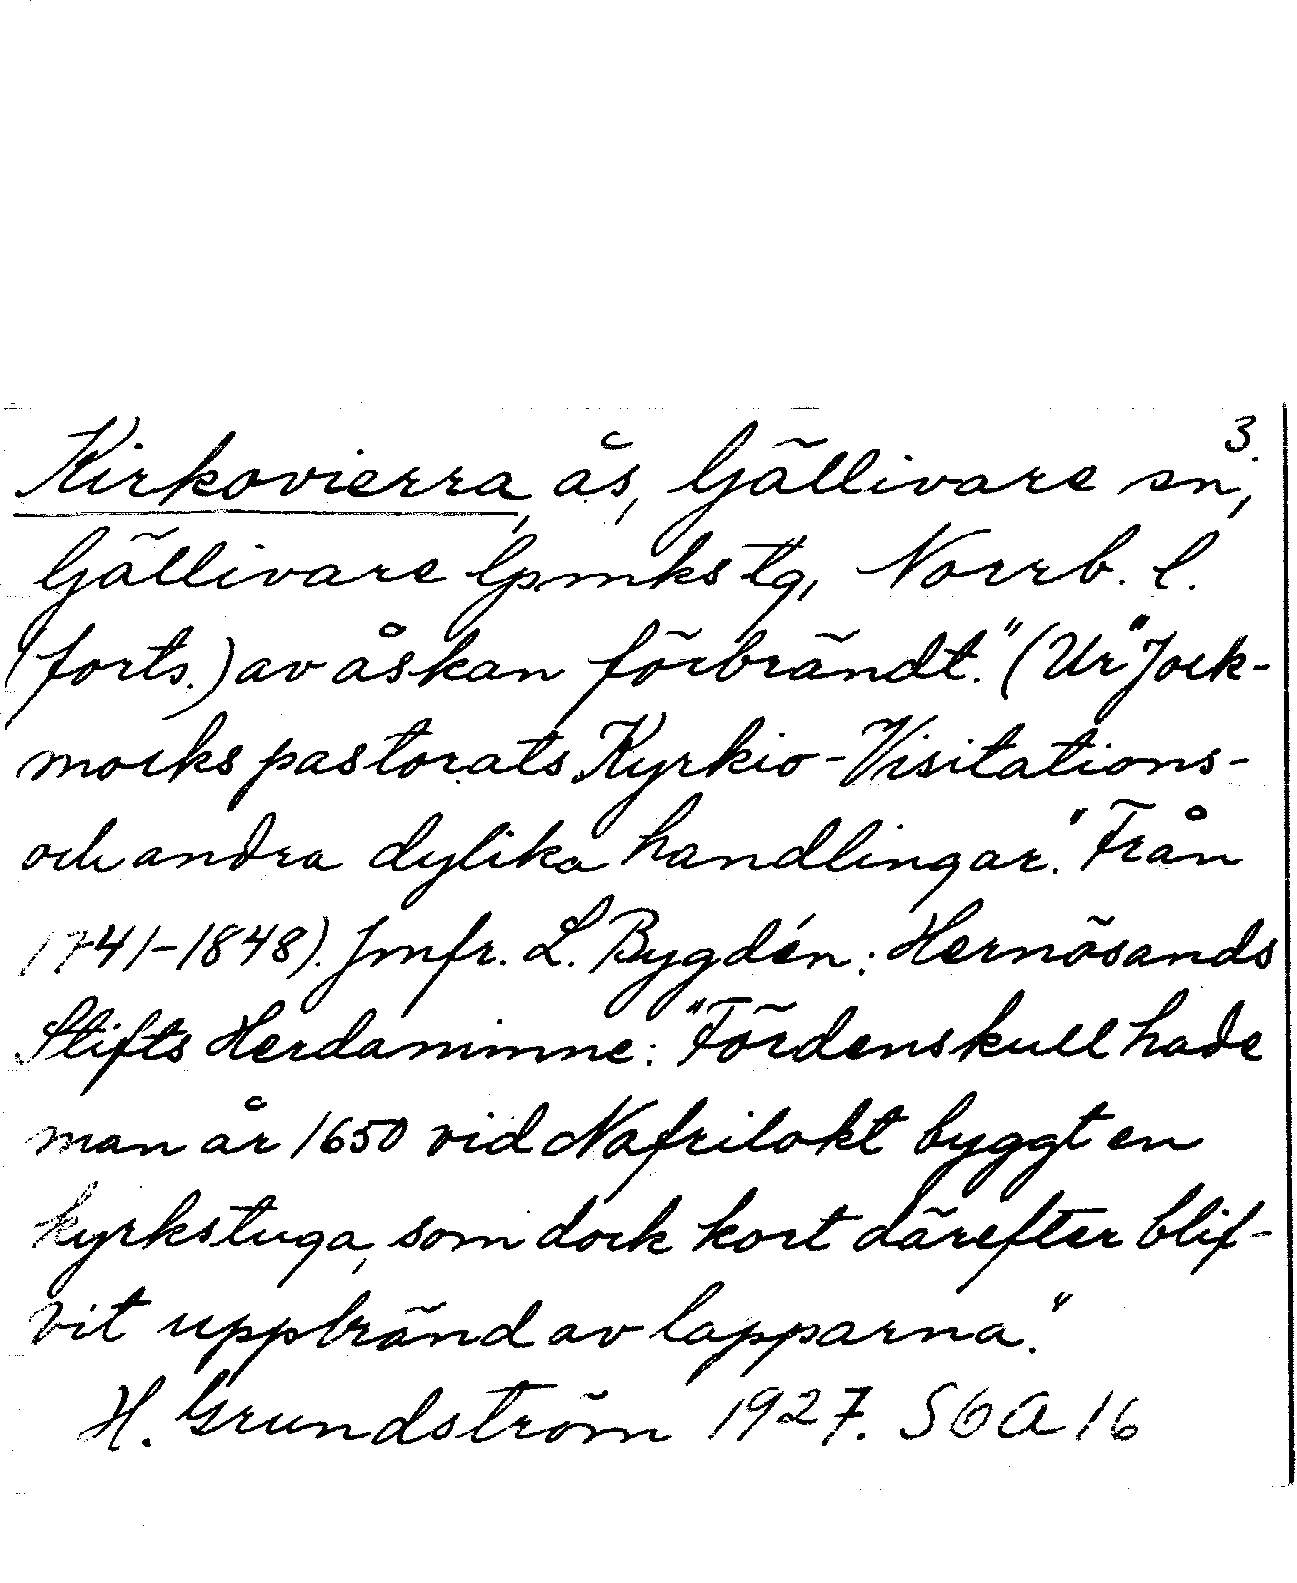 3.
Kirkovierra, ås, Gällivare sn,
Gällivare lpmkstg, Norrb. l.
(forts.) av åskan förbrändt." (Ur "Jock-
mocks pastorats Kyrkio-Visitations-
och andra dylika handlingar." Från
1741-1848). Jmfr. L. Bygdén: Hernösands
Stifts Herdaminne: "Fördenskull hade
man år 1650 vid Nafrilokt byggt en
kyrkstuga, som dock kort därefter blif-
vit uppbränd av lapparna."
H. Grundström 1927. S6A16